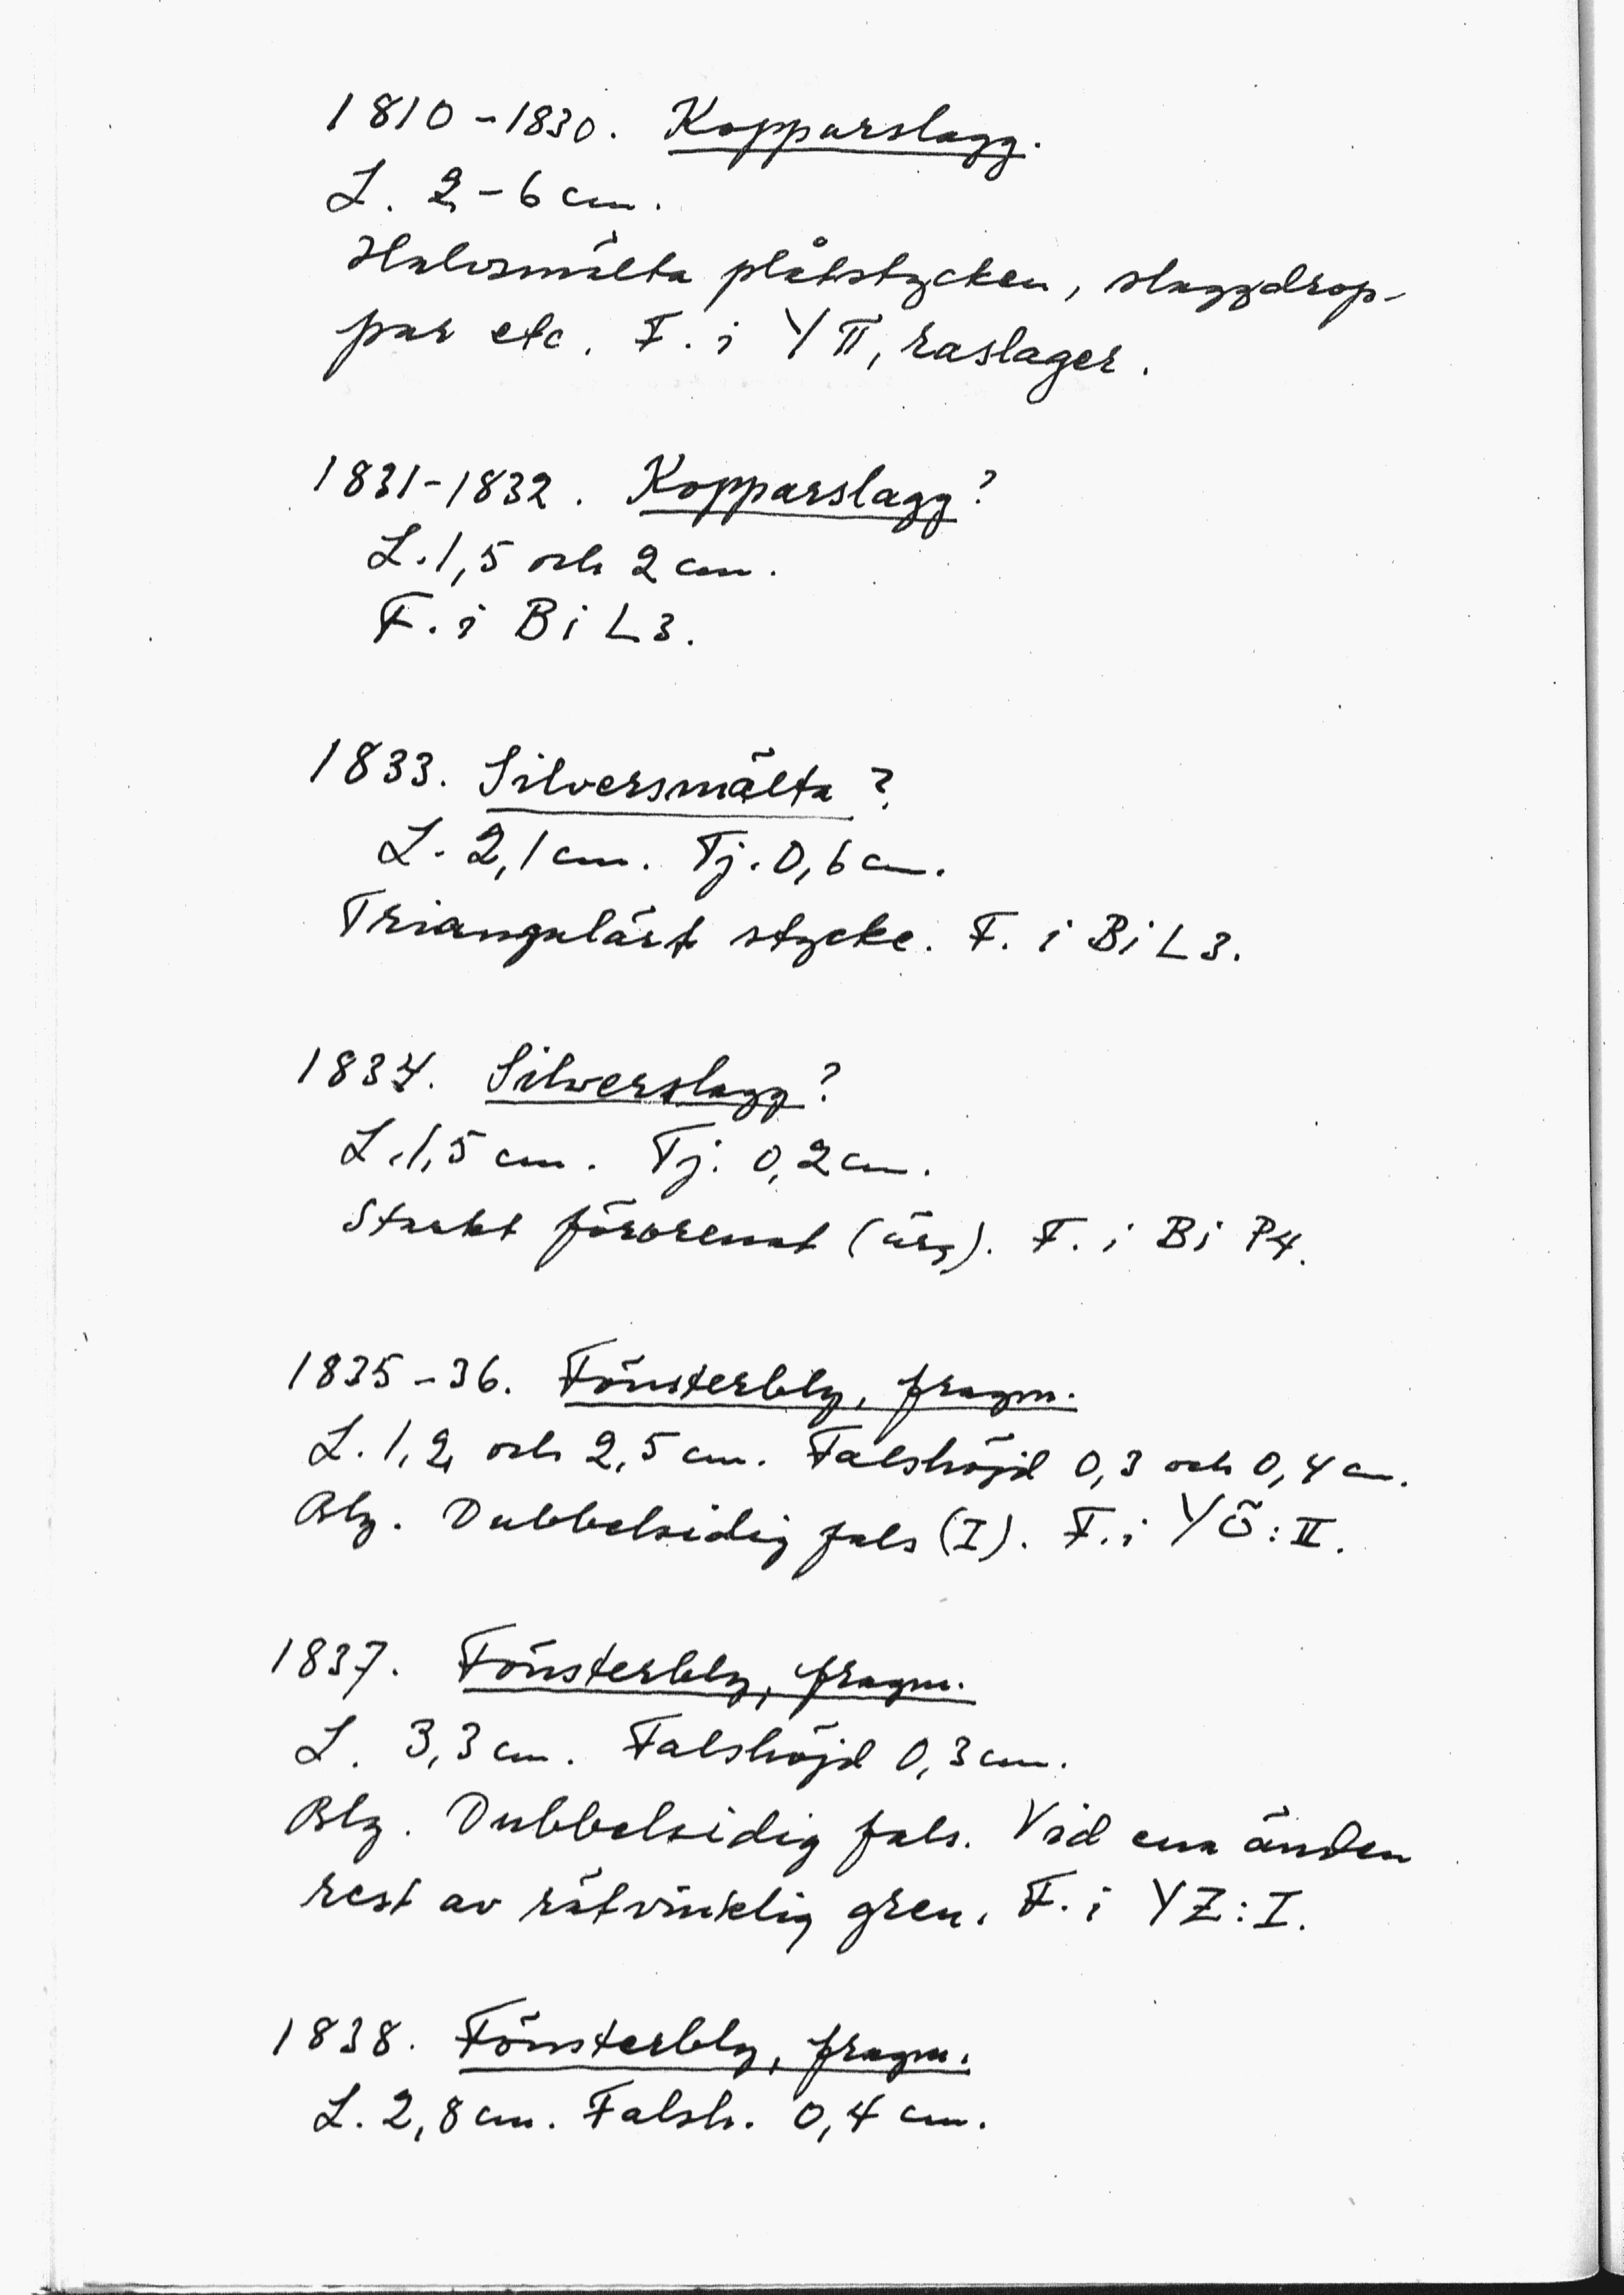 1810-1830. Kopparslagg.
L. 2-6 cm.
Halvsmälta plåtstycken, slaggdrop-
par etc. F. i Y II, raslager.
1831-1832. Kopparslagg?
L. 1,5 och 2 cm.
F. i B i L3.
1833. Silversmälta?
L. 2,1 cm. Tj. 0,6 cm.
Triangulärt stycke. F. i B i L3.
1834. Silverslagg?
L. 1,5 cm. Tj. 0,2 cm.
Starkt förorenat (ärg). F. i B i P4.
1835-36. Fönsterbly, fragm.
L. 1,2 och 2,5 cm. Falshöjd 0,3 och 0,4 cm.
Bly. Dubbelsidig fals (I). F. i YÖ:II.
1837. Fönsterbly, fragm.
L. 3,3 cm. Falshöjd 0,3 cm.
Bly. Dubbelsidig fals. Vid ena änden
rest av rätvinklig gren. F. i YZ:I.
1838. Fönsterbly, fragm.
L. 2,8 cm. Falsh. 0,4 cm.